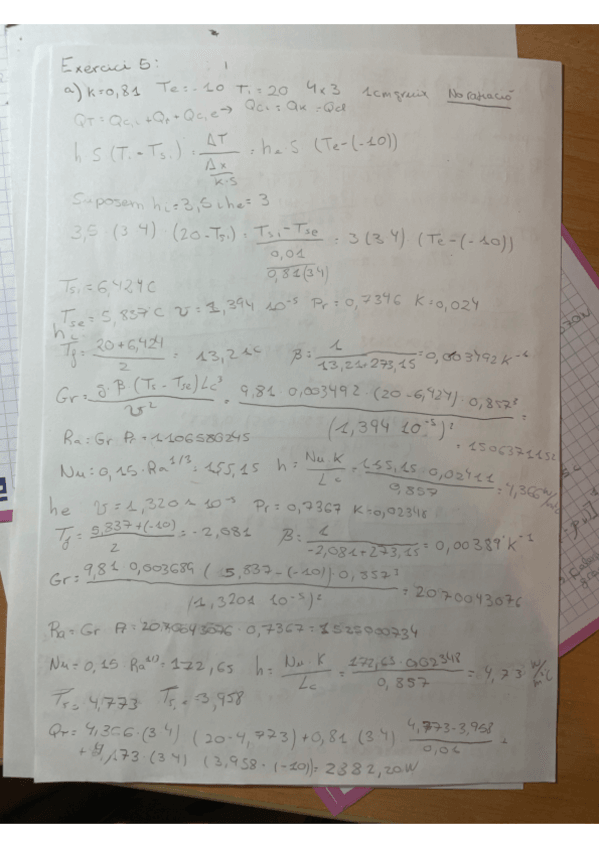 Exercici 5:
a) k=0,81 Te=-10 Ti=20 4x3 1cm gruix No radiació
QT = Qc,i + Qk + Qc,e → Qci = Qk = Qce
h S (Ti - Tsi) = ΔT / (Δx / k·S) = he S (Te-(-10))
Suposem hi=3,5 i he=3
3,5 (3 4) · (20-Tsi) = (Tsi - Tse) / (0,01 / 0,81(34)) = 3 (3 4) (Te-(-10))
Tsi = 6,424C
Tse = 5,837C ν = 1,394 10⁻⁵ Pr = 0,7346 K=0,024
hi
Tf = (20+6,424)/2 = 13,21C β = 1/(13,21+273,15) = 0,003492 K⁻¹
Gr = g·β·(Ti - Tse)Lc³ / ν² = 9,81 · 0,003492 · (20-6,424) · 0,857³ / (1,394 10⁻⁵)² = 1506371152
Ra = Gr Pr = 1106580245
Nu = 0,15 · Ra^1/3 = 155,15 h = Nu·K / Lc = 155,15 · 0,02411 / 0,857 = 4,366
he ν = 1,320 10⁻⁵ Pr = 0,7367 K=0,02348
Tf = (5,837+(-10))/2 = -2,081 β = 1/(-2,081+273,15) = 0,00389 K⁻¹
Gr = 9,81 0,003689 (5,837-(-10)) 0,857³ / (1,3201 10⁻⁵)² = 2070043076
Ra = Gr Pr = 2070043076 · 0,7367 = 1525000734
Nu = 0,15 · Ra^1/3 = 172,65 h = Nu·K / Lc = 172,65 · 0,02348 / 0,857 = 4,73
= 4,773 = 3,958
QT = 4,366 · (3 4) (20-4,773) + 0,81 (34) (4,773-3,958)/0,01 +
+ 4,73 · (3 4) (3,958 - (-10)) = 2382,20W